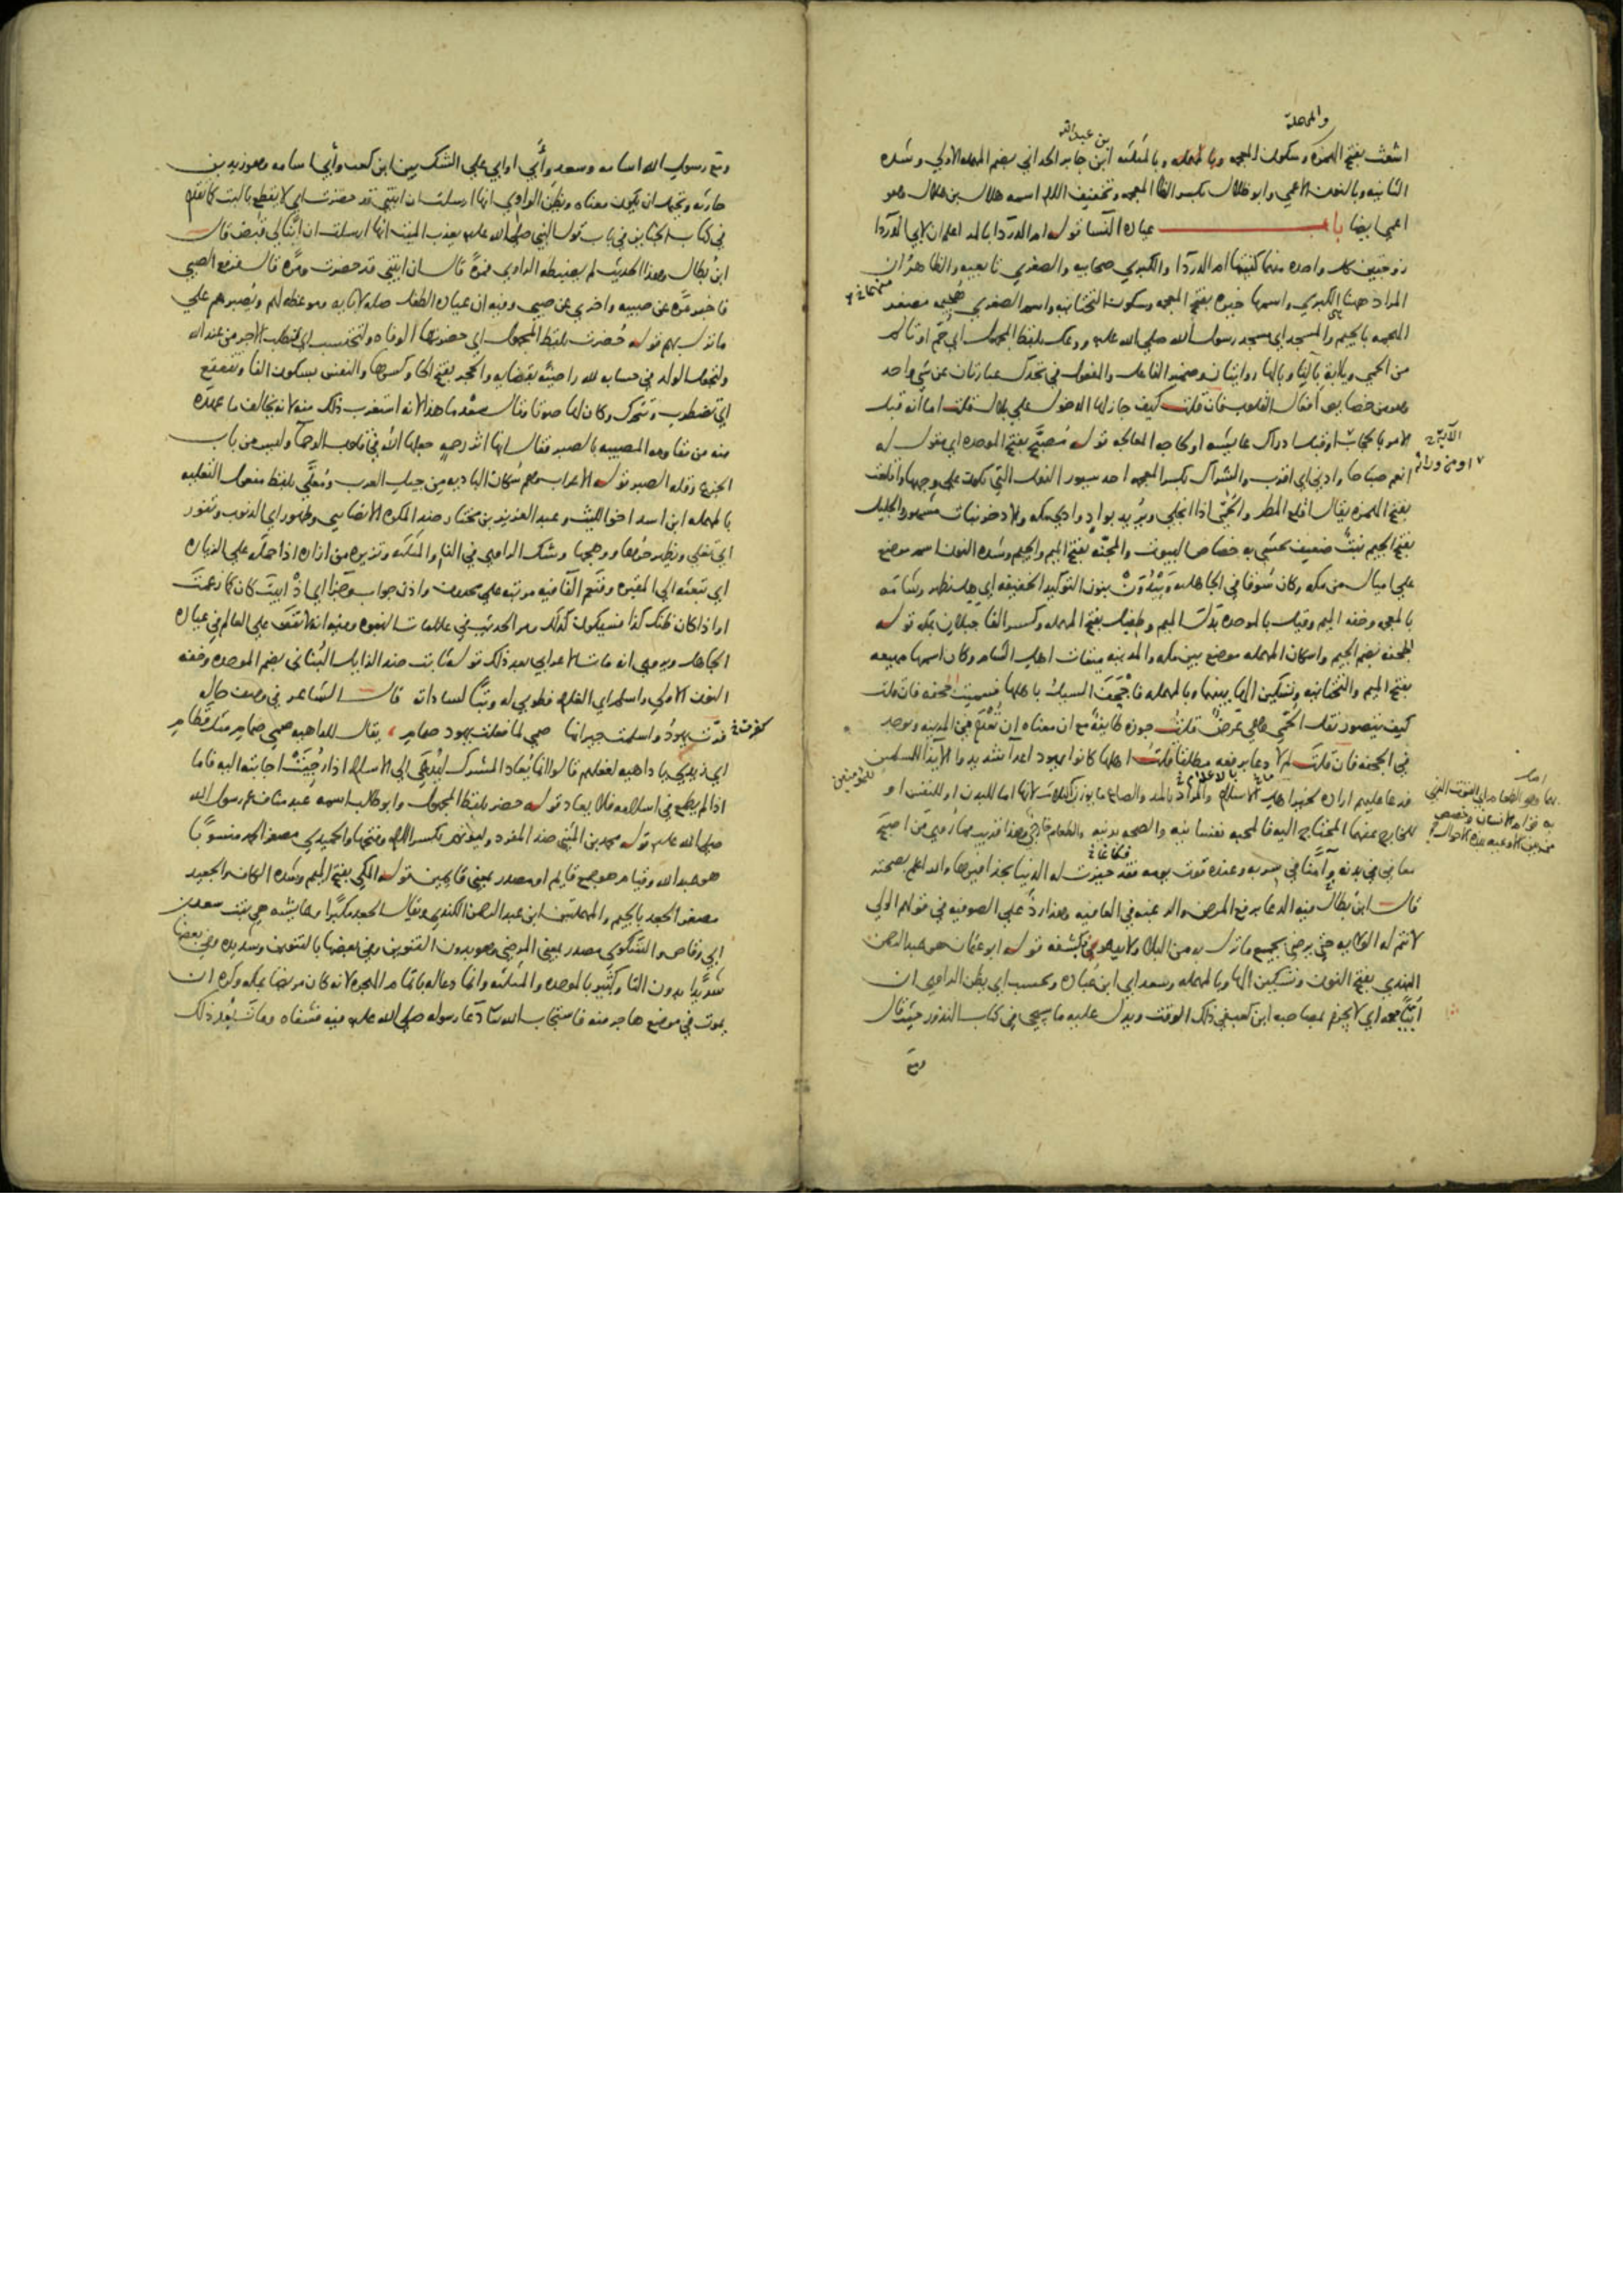 والمهملة
بن عبد الله
اشعث بفتح الهمزة وسكون المعجمه وبالمهمله وبالمثلثه ابن جابر الحداني بضم المهمله الاولي وشده
الثانيه وبالنون الاعمي وابو ظلال بكسر الظا المعجمه وتخفيف اللام اسمه هلال بن هلال وهو
اعمي ايضا باب عياده النسا قوله ام الدردا بالمد اعلم ان لابي الدردا
زوجتين كل واحده منهما كنيتها ام الدردا والكبري صحابيه والصغري تابعيه والظاهر ان
المراد ههنا الكبري واسمها خيره بفتح المعجمه وسكون التحتانيه واسم الصغري هجيمه مصغر
الهجمه بالجيم والمسجد اي مسجد رسول الله صلي الله عليه ووعك بلفظ المجهول اي حم او تالم
من الحمي ويا ابه بالتا وبالها روايتان وضمير الفاعل والمفعول في تجدك عبارتان عن شي واحد
وهو من خصايص افعال القلوب فان قلت كيف جاز لها الدخول علي بلال قلت اما انه قبل
الامر بالحجاب او قبل ادراك عايشه او كان للمعالجه قوله مصبح بفتح الموحده اي مقول له
انعم صباحا وادني اي اقرب والشراك بكسر المعجمه احد سيور النعل التي تكون علي وجهها واقلعت
بفتح الهمزه يقال اقلع المطر والحمي اذا انجلي ويريد بواد وادي مكه والاذخر نبات مشهور والجليل
بفتح الجيم نبت ضعيف يحشي به خصاص البيوت والمجنه بفتح الميم والجيم وشده النون اسم موضع
علي اميال من مكه وكان سوقا في الجاهليه ويبدون بنون التوكيد الخفيفه اي هل يظهر وشامه
بالمعجمه وخفه الميم وقيل بالموحده بدل الميم وطفيل بفتح المهمله وكسر الفا جبلان بمكه قوله
الجحفه بضم الجيم واسكان المهمله موضع بين مكه والمدينه ميقات اهل الشام وكان اسمها مهيعه
بفتح الميم والتحتانيه وتسكين الها بينهما وبالمهمله فاجحف السيل باهلها فسميت الجحفه فان قلت
كيف يتصور نقل الحمي وهي عرض قلت جوزه طايفه مع ان معناه ان تعدم من المدينه وتوجد
في الجحفه فان قلت لم لا دعا برفعه مطلقا قلت اهلها كانوا يهود اعدا شديد والايذا للمسلمين
فدعا عليهم اراده لخير اهل الاسلام والمراد بالمد والصاع ما يوزن لان هذه الثلاث اما للبدن او للنفس او
للخارج عنهما المحتاج اليه فالمحبه نفسانيه والصحه بدنيه والطعام خارجي وهذا قريب مما روي من اصبح
معافي في بدنه وآمنا في سربه وعنده قوت يومه فقد حيزت له الدنيا بحذافيرها والله اعلم بصحته
قال ابن بطال فيه الدعا برفع المرض والرغبه في العافيه وهذا رد علي الصوفيه في قولهم الولي
لا تتم له الولايه حتي يرضي بجميع ما نزل به من البلا ولا يدعو في كشفه قوله ابو عثمان هو عبد الرحمن
النهدي بفتح النون وتسكين الها وبالمهمله وسعد اي ابن عباده ونحسب اي يظن الراوي ان
ابيا معه اي لا يجزم بمصاحبه ابن كعب في ذلك الوقت ويدل عليه ما سيجي في كتاب النذور حيث قال
ومع
ومع رسول الله اسامه وسعد وأبي او ابي علي الشك بين ابن كعب وأبي اسامه وهو زيد بن
حارثه ويحتمل ان يكون معناه ويظن الراوي انها ارسلت ان ابنتي قد حضرت اي لا يقطع بالبنت كما تقدم
في كتاب الجنايز في باب قول النبي صلي الله عليه يعذب الميت انها ارسلت ان ابنا لي قبض قال
ابن بطال وهذا الحديث لم يضبطه الراوي فمرة قال ان ابنتي قد حضرت ومرة قال فرفع الصبي
فاخبر مره عن صبيه واخري عن صبي وفيه ان عياده الطفل صله لابايه وموعظه لهم وتصبرهم علي
ما نزل بهم قوله حضرت بلفظ المجهول اي حضرتها الوفاه ولتحتسب اي لتطلب الاجر من عند الله
ولتجعل الولد في حسابه لله راضيه بقضايه والحجر بفتح الحا وكسرها والنفس بسكون الفا وتقعقع
اي تضطرب وتتحرك وكان لها صوتا وقال سعد ما هذا لانه استغرب ذلك منه لانه يخالف ما عهده
منه من مقاومه المصيبه بالصبر فقال انها اثر رحمه جعلها الله في قلوب الرحما وليس من باب
الجزع وقله الصبر قوله الاعراب وهم سكان الباديه من جيل العرب ومعلي بلفظ مفعول التعليه
بالمهمله ابن اسد اخو الليث وعبد العزيز بن مختار ضد المكره الانصاري وطهور اي الذنوب وتفور
اي تغلي ويظهر حرها ووهجها وشك الراوي في الفا والمثلثه وتزيره من ازاره اذا حمله علي الزياره
اي تبعثه الي المقبره وفنعم الفا فيه مرتبه علي محذوف واذن جواب وجزا اي اذ ابيت كان كما زعمت
او اذا كان ظنك كذا فسيكون كذلك ومر الحديث في علامات النبوه وفيه انه لا نقص علي العالم في عياده
الجاهل وروي انه مات الاعرابي بعد ذلك قوله ثابت ضد الزايل البناني بضم الموحده وخفه
النون الاولي واسلم اي الغلام فطوبي له وتبا لسادات قال الشاعر في وصف حاله
فرت يهود واسلمت جيرانها صمي لما فعلت يهود صمام ، يقال للداهيه صمي صمام مثل قطام
اي زيدي يا داهيه لفعلهم قالوا انما يعاد المشرك ليدعي الي الاسلام اذا رجيت اجابته اليه فاما
اذا لم يطمع في اسلامه فلا يعاد قوله حضر بلفظ المجهول وابو طالب اسمه عبد مناف عم رسول الله
صلي الله عليه قوله محمد بن المثني ضد المفرد وليؤتم بكسر اللام وفتحها والحميدي مصغر الحمد منسوبا
هو عبد الله وقيام هو جمع قايم او مصدر بمعني قايمين قوله المكي بفتح الميم وشده الكاف والجعيد
مصغر الجعد بالجيم والمهملتين ابن عبد الرحمن الكندي ويقال الجعد مكبرا وعايشه هي بنت سعد بن
ابي وقاص والشكوي مصدر بمعني المرض وهو بدون التنوين وفي بعضها بالتنوين وشديده وفي بعضها
شديدا بدون التا وكثير بالموحده والمثلثه وانما دعا له باتمام الهجره لانه كان مريضا بمكه وكره ان
يموت في موضع هاجر منه فاستجاب الله تعالي دعا رسوله صلي الله عليه فيه فشفاه ومات بعد ذلك